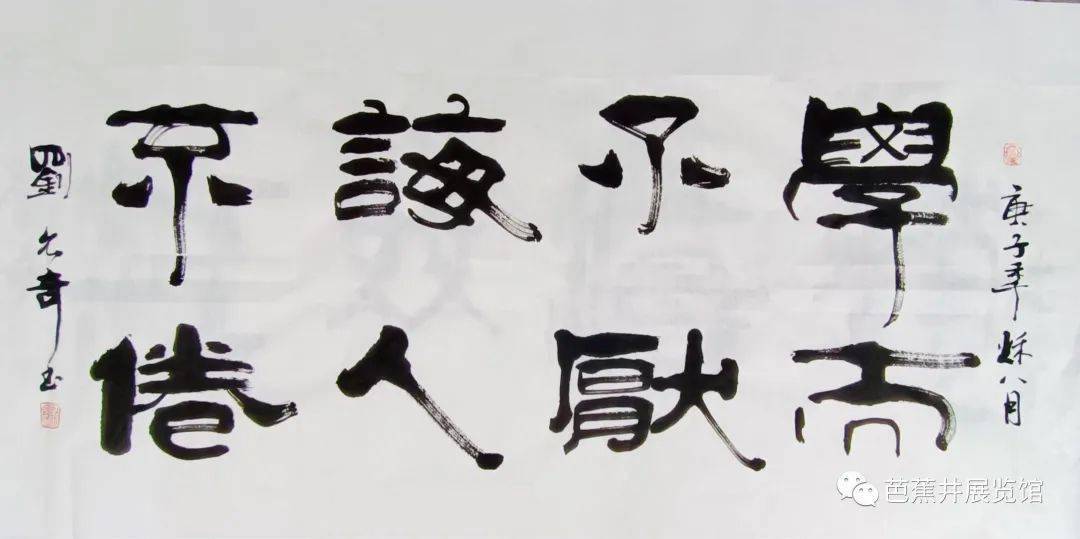 庚子年秋八月
學而
不厭
誨人
不倦
劉
芭蕉井展览馆